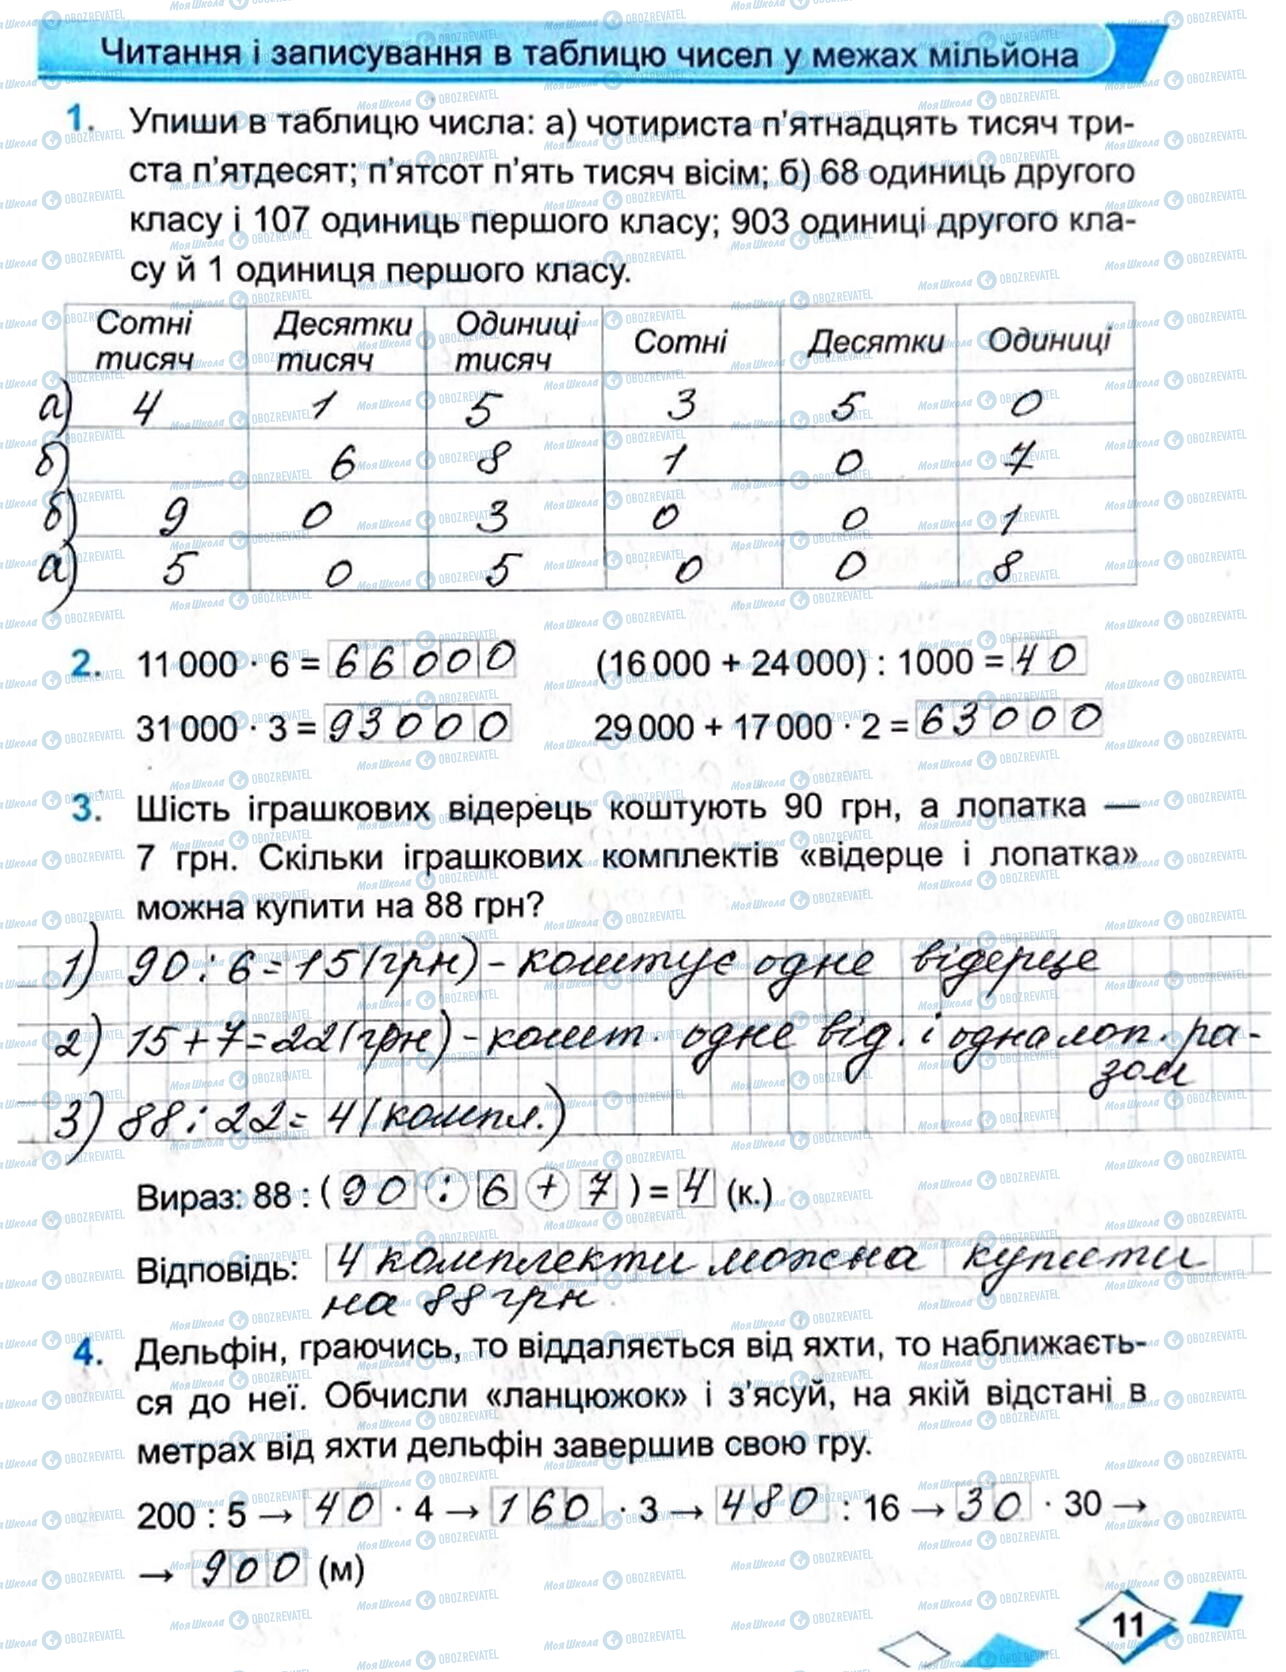 Читання і записування в таблицю чисел у межах мільйона
1. Упиши в таблицю числа: а) чотириста п'ятнадцять тисяч три-
ста п'ятдесят; п'ятсот п'ять тисяч вісім; б) 68 одиниць другого
класу і 107 одиниць першого класу; 903 одиниці другого кла-
су й 1 одиниця першого класу.
Сотні тисяч Десятки тисяч Одиниці тисяч Сотні Десятки Одиниці
а) 4 1 5 3 5 0
б) 6 8 1 0 7
б) 9 0 3 0 0 1
а) 5 0 5 0 0 8
2. 11 000 · 6 = 66000 (16 000 + 24 000) : 1000 = 40
31 000 · 3 = 93000 29 000 + 17 000 · 2 = 63000
3. Шість іграшкових відерець коштують 90 грн, а лопатка —
7 грн. Скільки іграшкових комплектів «відерце і лопатка»
можна купити на 88 грн?
1) 90 : 6 = 15 (грн) - коштує одне відерце
2) 15 + 7 = 22 (грн) - кошт. одне від. і одна лоп. ра-
зом
3) 88 : 22 = 4 (компл.)
Вираз: 88 : ( 90 : 6 + 7 ) = 4 (к.)
Відповідь: 4 комплекти можна купити
на 88 грн
4. Дельфін, граючись, то віддаляється від яхти, то наближаєть-
ся до неї. Обчисли «ланцюжок» і з'ясуй, на якій відстані в
метрах від яхти дельфін завершив свою гру.
200 : 5 → 40 · 4 → 160 · 3 → 480 : 16 → 30 · 30 →
→ 900 (м)
11
МояШкола OBOZREVATEL